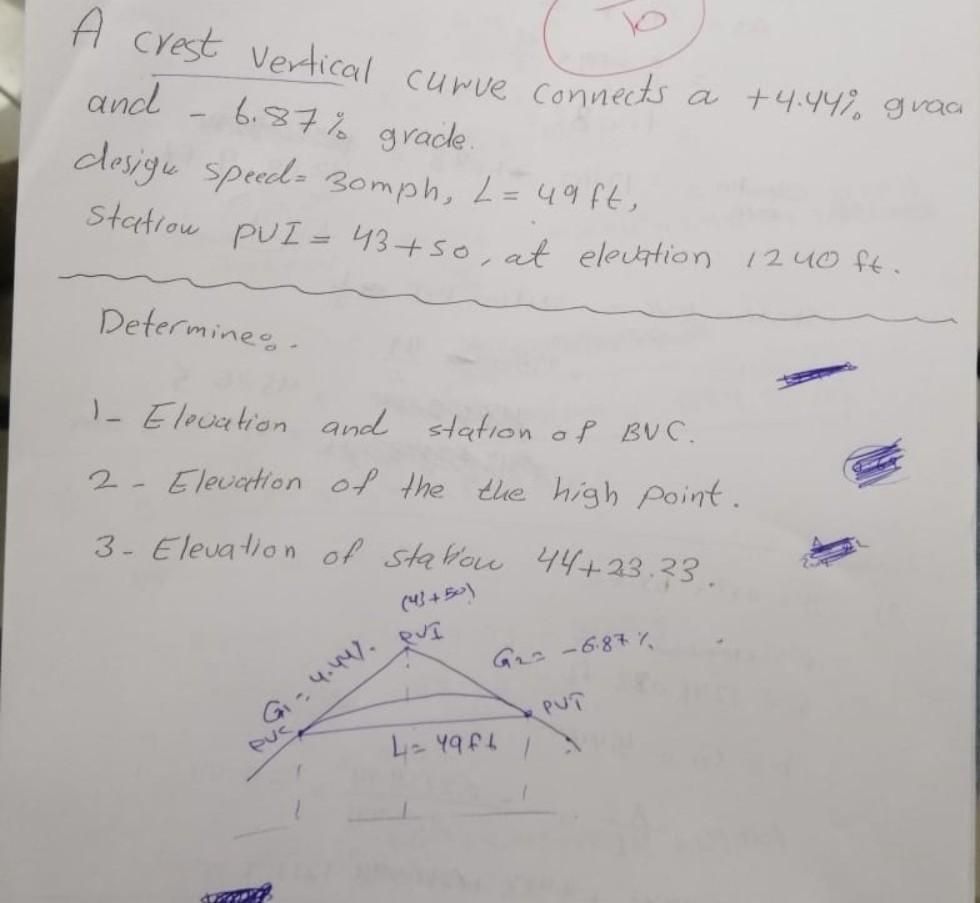 10
A crest vertical curve connects a +4.44% grad
and - 6.87% grade.
design speed= 30mph, L = 49 ft,
Station PVI = 43+50, at elevation 1240 ft.
Determine:.
1- Elevation and station of BVC.
2 - Elevation of the the high point.
3- Elevation of station 44+23.23.
(43+50)
PVI
G1 = 4.44%.
G2= -6.87%
PVC
PVT
L= 49ft